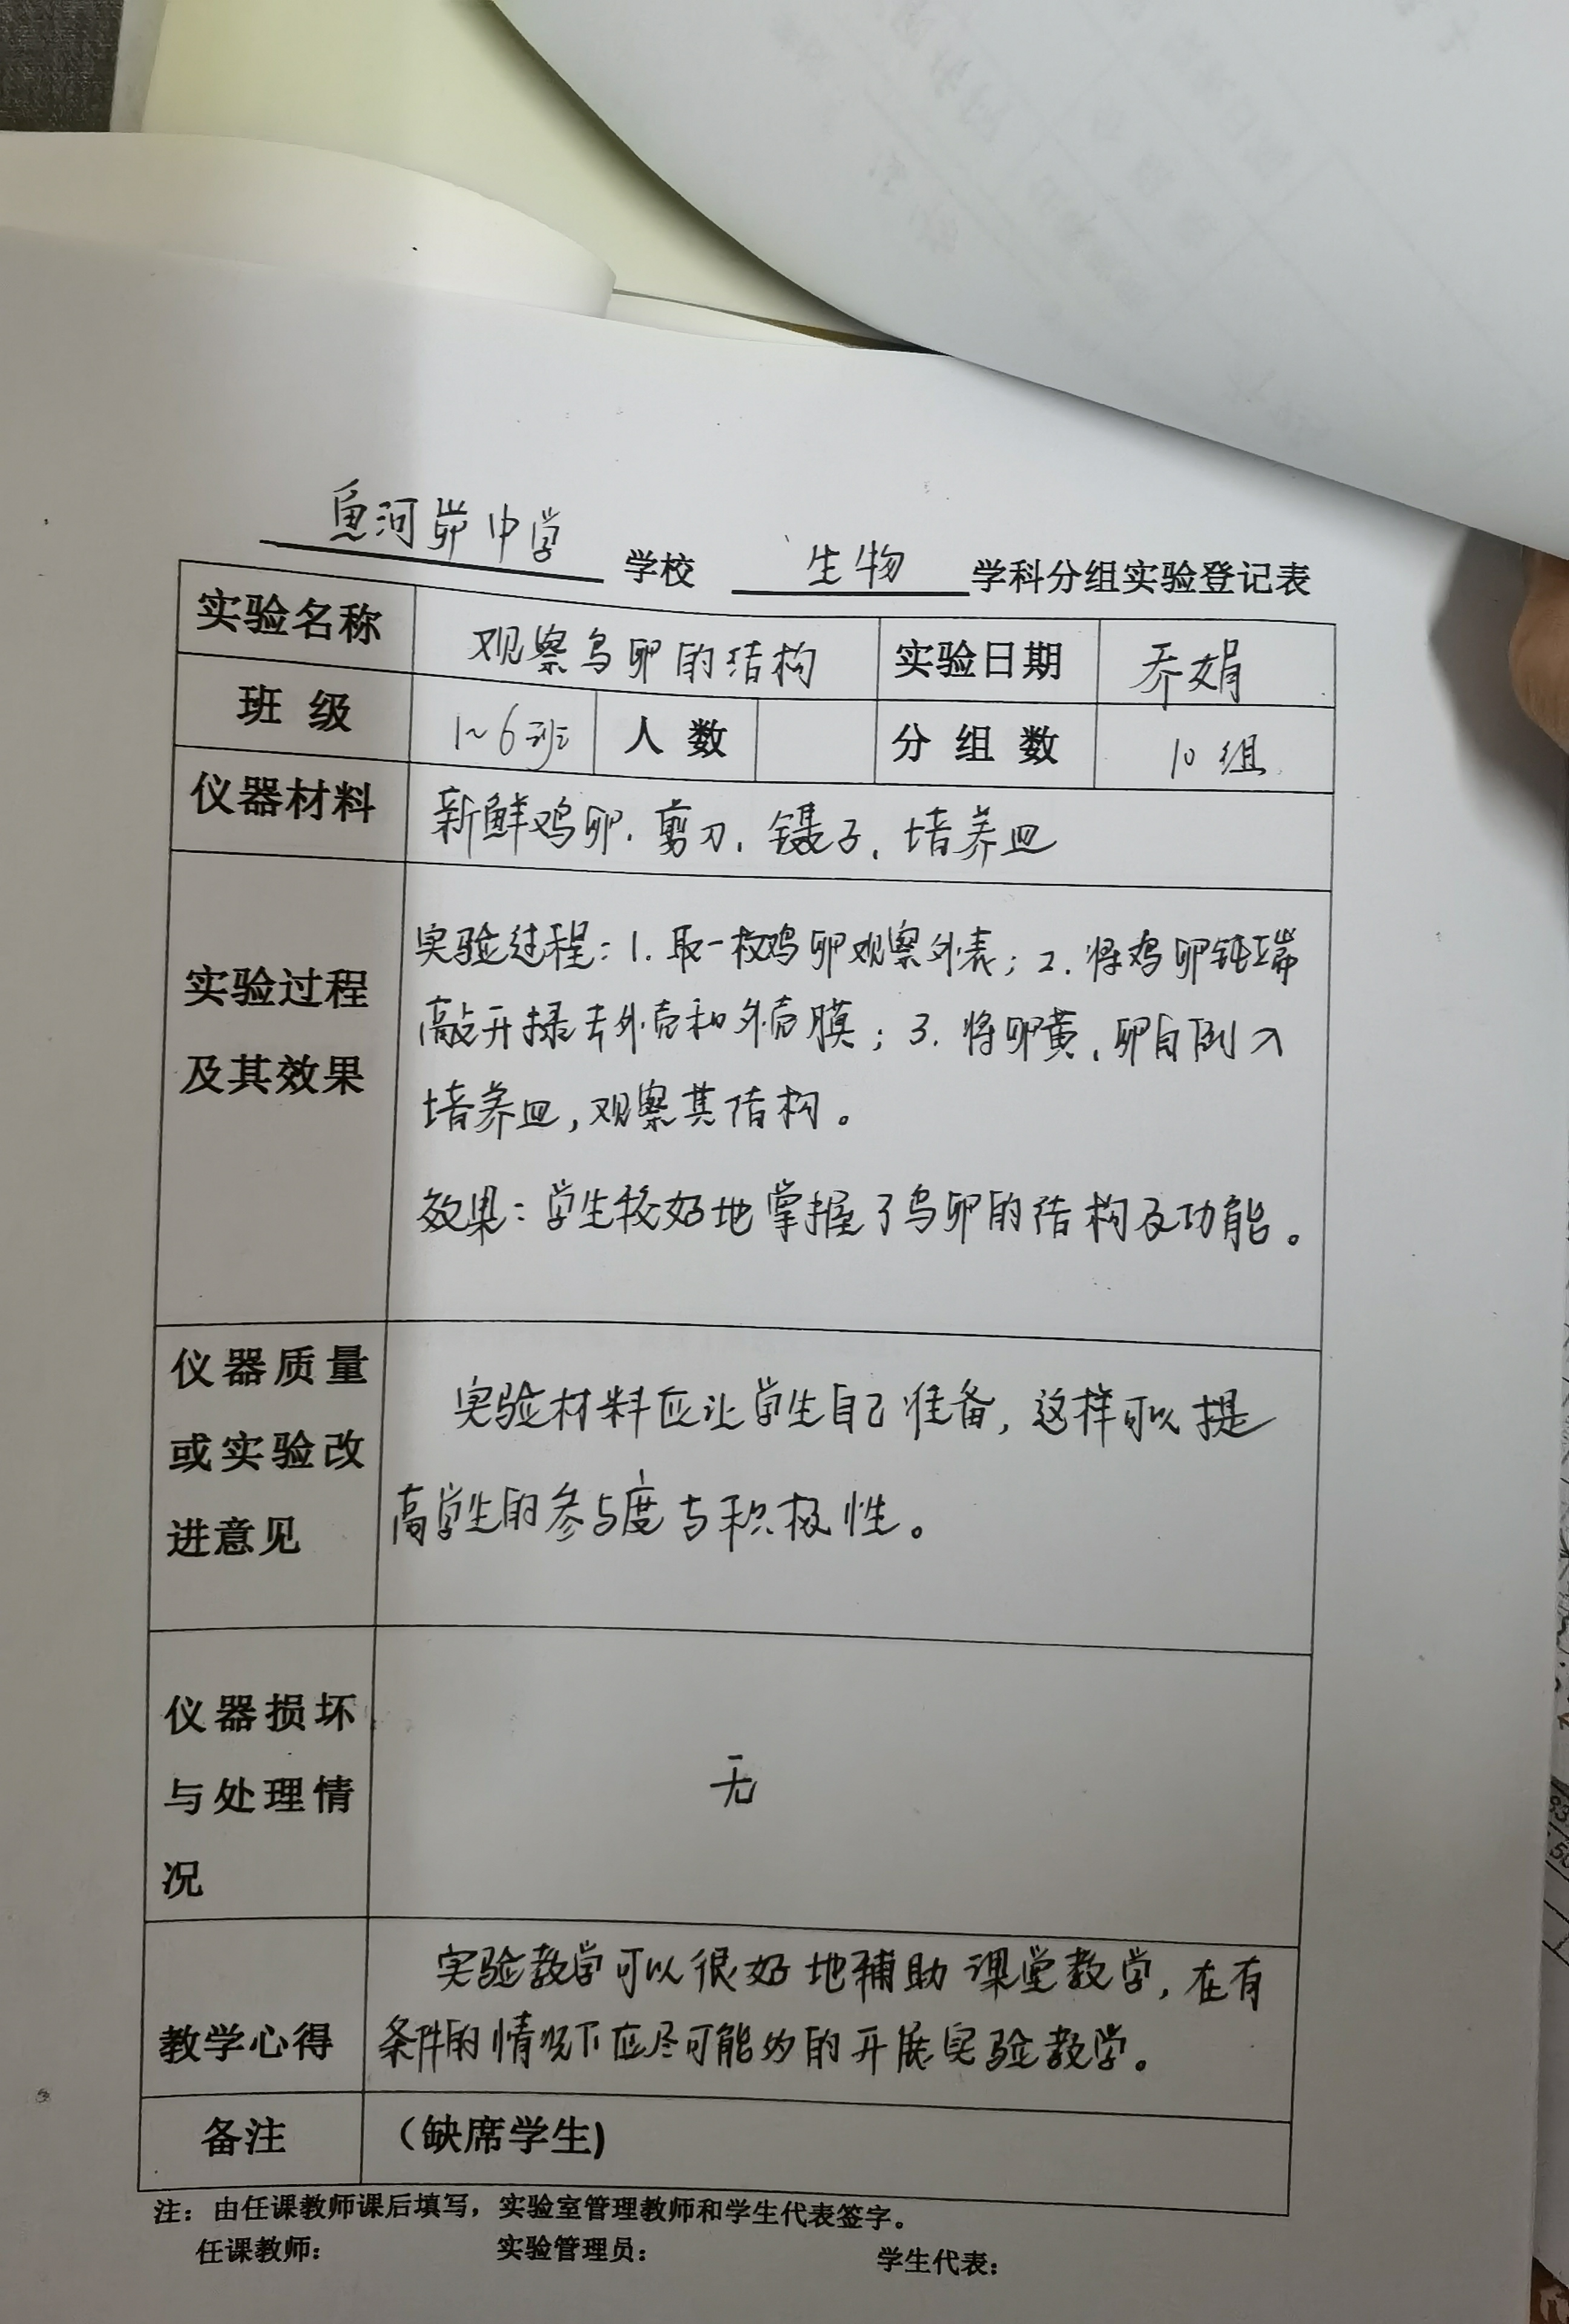 鱼河峁中学 学校 生物 学科分组实验登记表
实验名称 观察鸟卵的结构 实验日期 乔娟
班 级 1~6班 人 数 分 组 数 10组
仪器材料 新鲜鸡卵、剪刀、镊子、培养皿
实验过程
及其效果
实验过程：1. 取一枚鸡卵观察外表；2. 将鸡卵钝端
敲开掾去外壳和外壳膜；3. 将卵黄、卵白倒入
培养皿，观察其结构。
效果：学生较好地掌握了鸟卵的结构及功能。
仪器质量
或实验改
进意见
实验材料应让学生自己准备，这样可以提
高学生的参与度与积极性。
仪器损坏
与处理情
况
无
教学心得
实验教学可以很好地辅助课堂教学，在有
条件的情况下应尽可能多的开展实验教学。
备注 （缺席学生)
注：由任课教师课后填写，实验室管理教师和学生代表签字。
任课教师： 实验管理员： 学生代表：